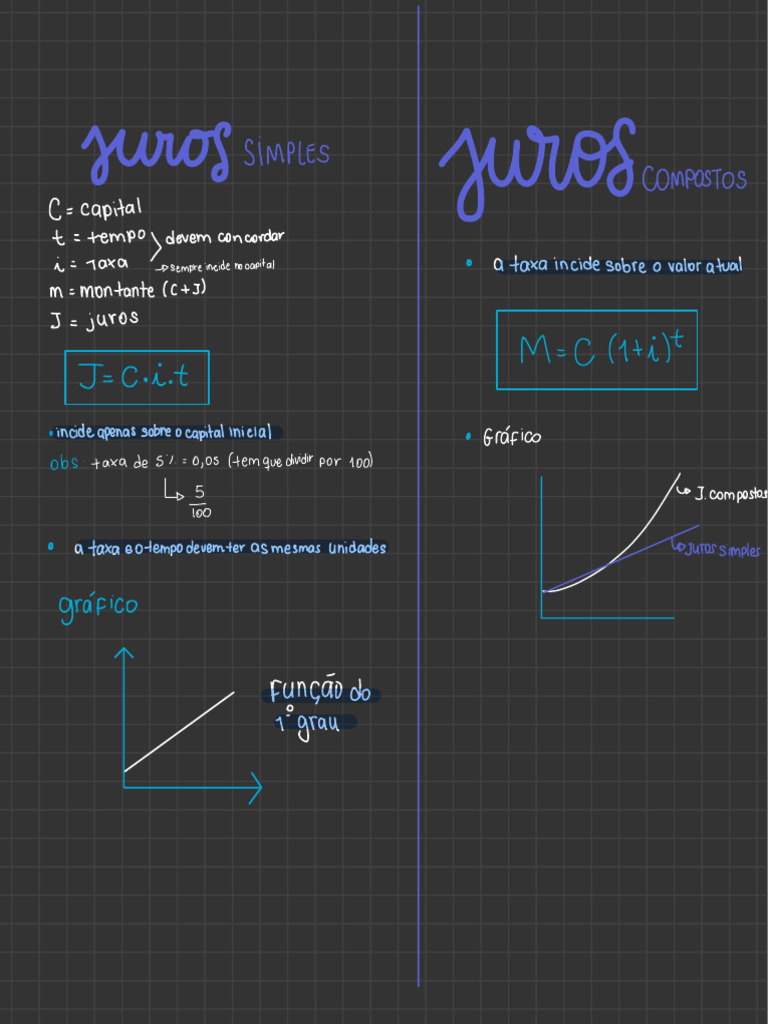 juros SIMPLES
C = capital
t = tempo
devem concordar
i = taxa
→ sempre incide no capital
m = montante (C + J)
J = juros
J = C · i . t
• incide apenas sobre o capital inicial
obs: taxa de 5% = 0,05 (tem que dividir por 100)
↳ 5/100
• a taxa e o tempo devem ter as mesmas unidades
gráfico
FUNÇÃO do
1º grau
juros COMPOSTOS
• a taxa incide sobre o valor atual
M = C (1+i)^t
• Gráfico
↳ J. compostos
↳ juros simples